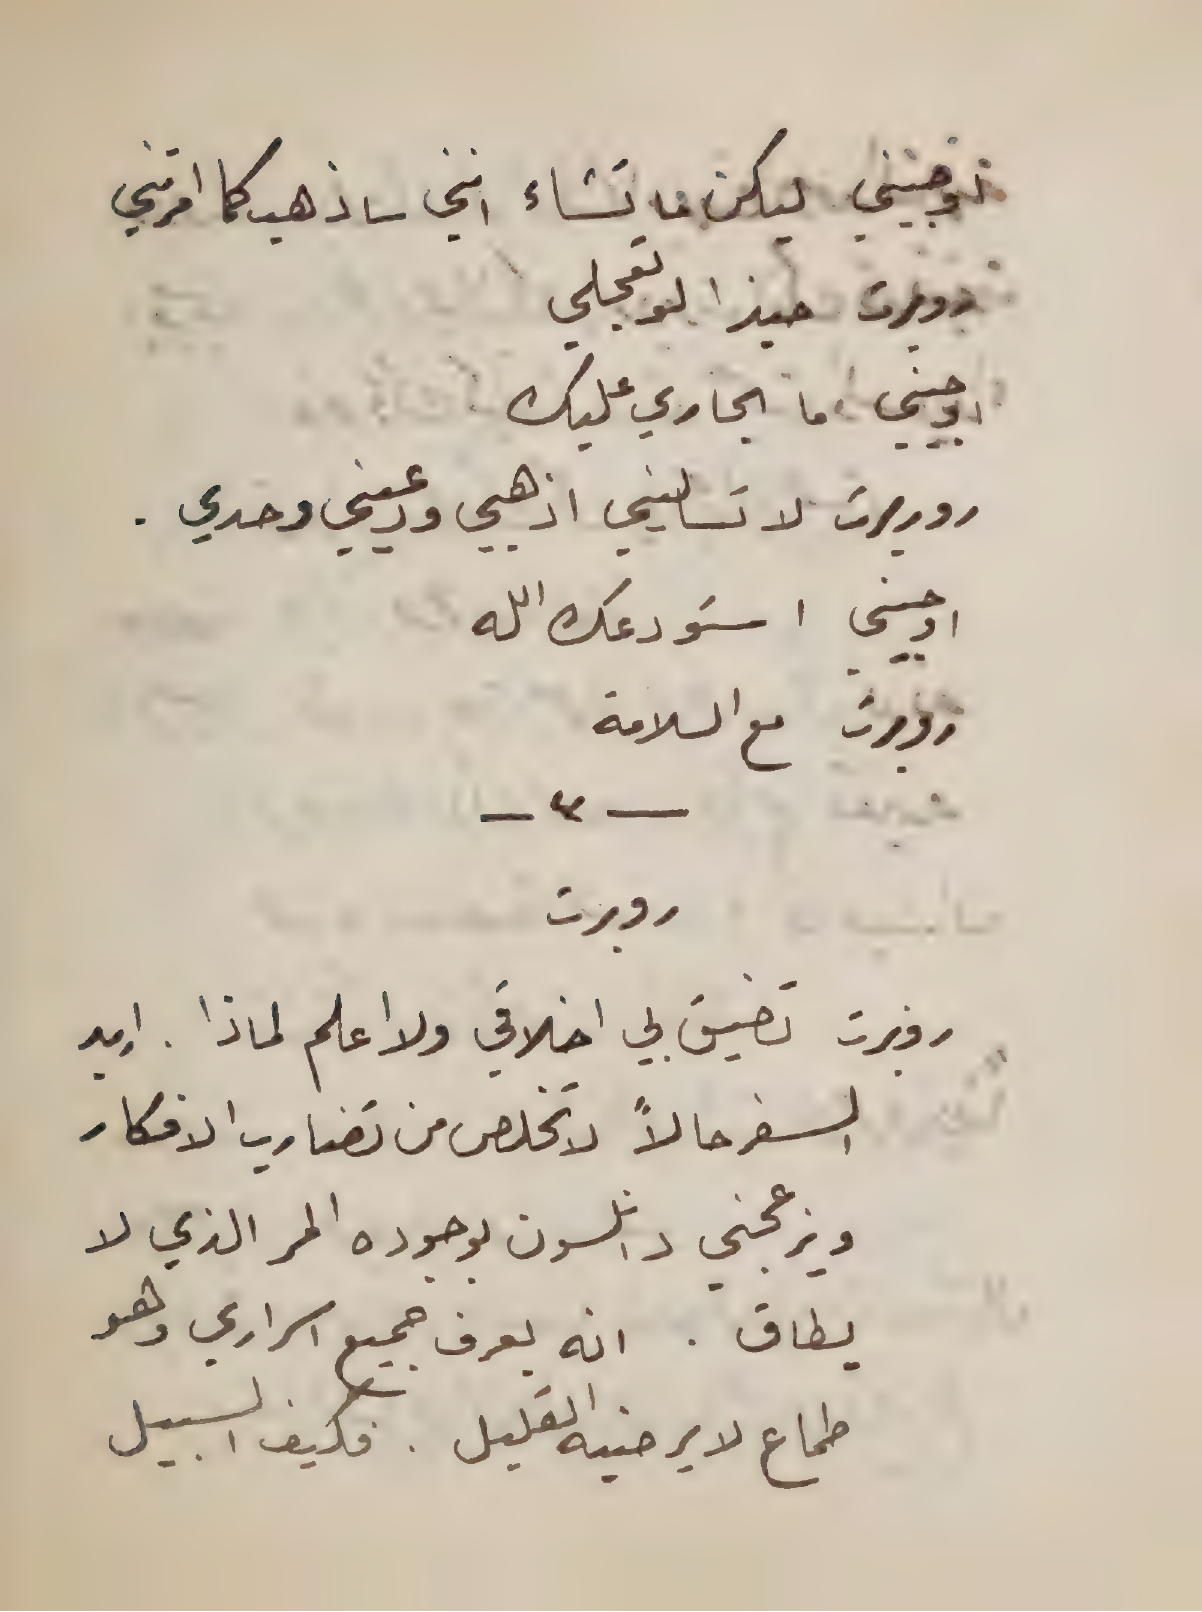 اوجيني ليكن ما تشاء انني ساذهب كما امرتني
روبرت حبذا لو تعجلي
اوجيني اما الجاري عليك
روبرت لا تسأليني اذهبي ودعيني وحدي .
اوجيني استودعك الله
روبرت مع السلامة
— ٣ —
روبرت
روبرت تضيق بي اخلاقي ولا اعلم لماذا . اريد
السفر حالاً لاتخلص من تضارب الافكار
ويزعجني دانلسون بوجوده المر الذي لا
يطاق . انه يعرف جميع اسراري وهو
طماع لا يرضيه القليل . فكيف السبيل